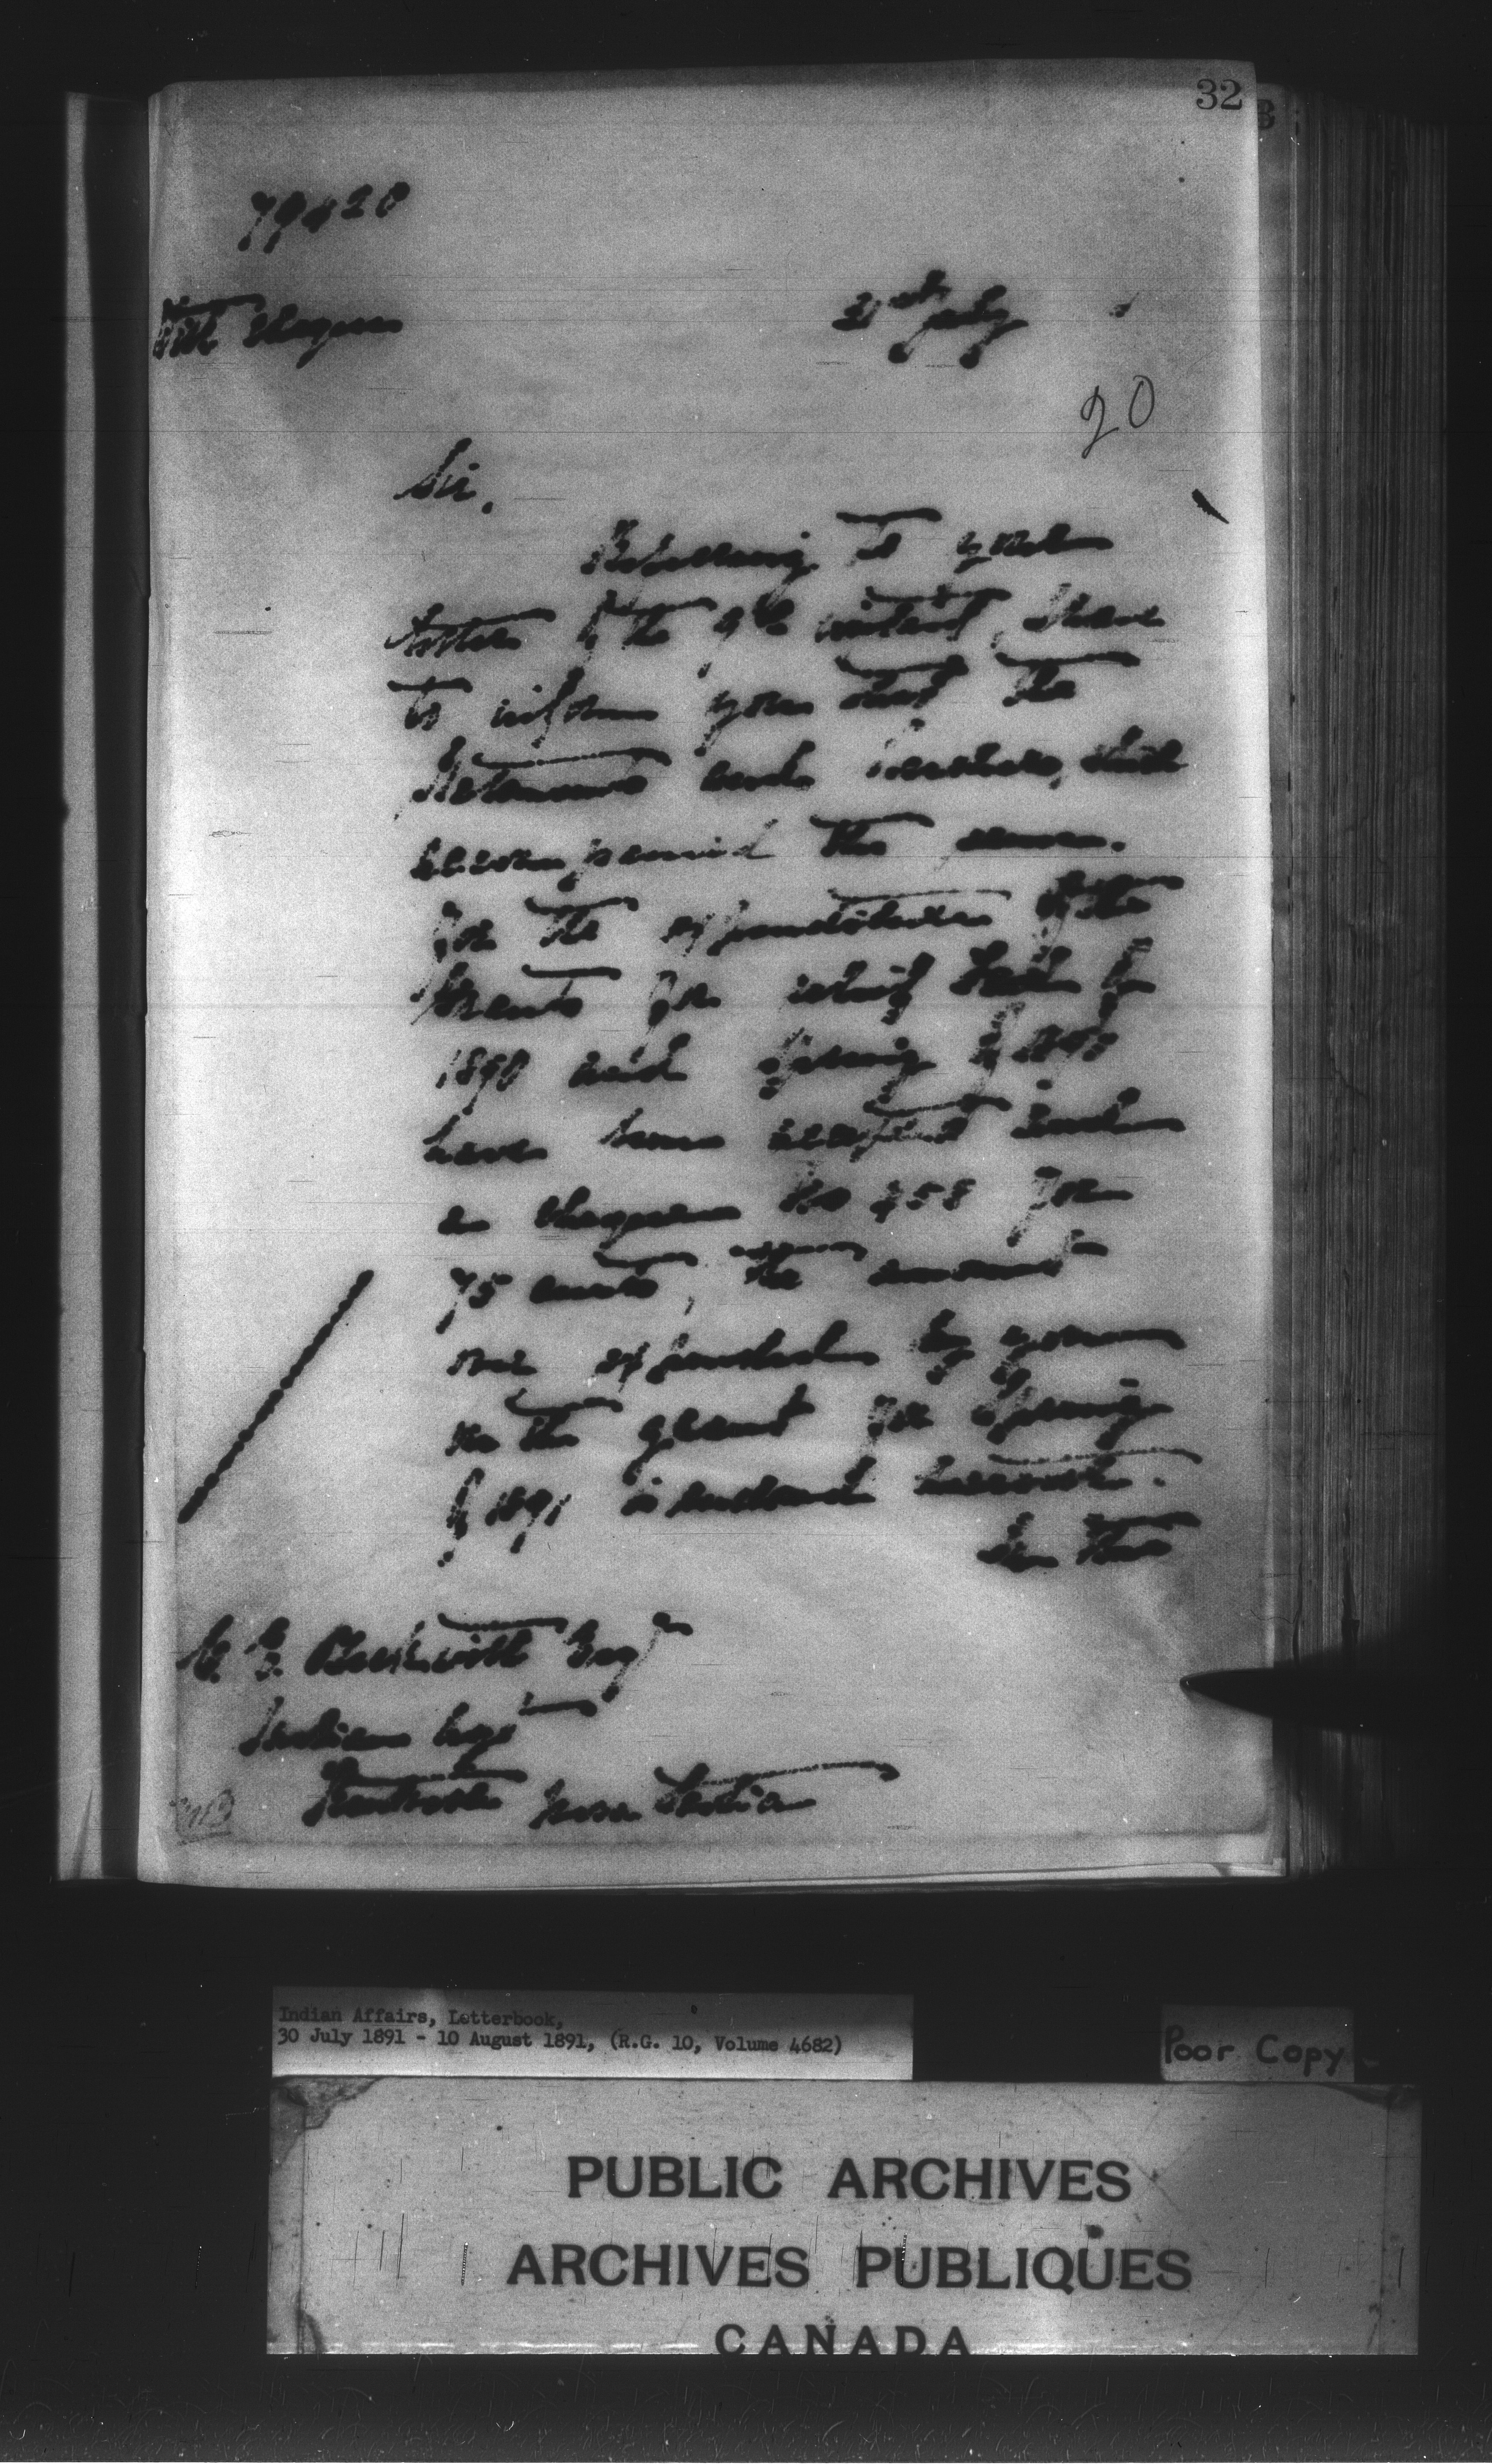 32
79420
With Cheque
31st July
20
Sir,
Referring to your
letter of the 9th instant, I have
to inform you that the
Statements and vouchers, which
accompanied the same
for the expenditure of the
Grants for relief
1890 and Spring of 1891
have been accepted and
a cheque No 458 for
75 cents, the amount
expended by you
on the grant for Spring
of 1891 is enclosed herewith.
C. E. Beckwith Esq
Indian Agt
Nova Scotia
Indian Affairs, Letterbook,
30 July 1891 - 10 August 1891, (R.G. 10, Volume 4682)
Poor Copy
PUBLIC ARCHIVES
ARCHIVES PUBLIQUES
CANADA